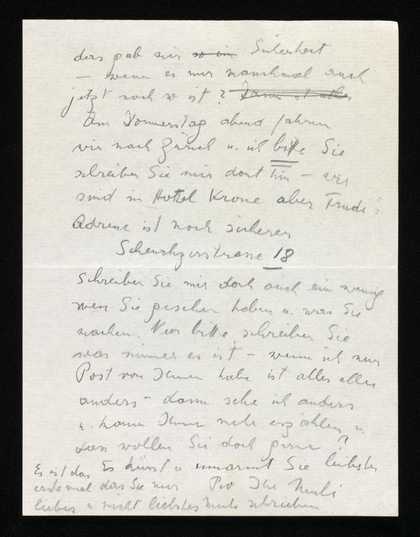 das gab mir so ein Sicherheit
– wenn es nur manchmal auch
jetzt noch so ist? Dann ist alles
Am Donnerstag abend fahren
wir nach Zürich u. ich bitte Sie
schreiben Sie mir dort hin – wir
sind im Hotel Krone aber Trude's
Adresse ist noch sicherer
Scheuchzerstrasse 18
Schreiben Sie mir doch auch ein wenig
wen Sie gesehen haben u. was Sie
machen. Nur bitte schreiben Sie
was immer es ist – wenn ich nur
Post von Ihnen habe ist alles alles
anders – dann sehe ich anders
u. kann Ihnen mehr erzählen u.
das wollen Sie doch gerne?
Es küsst u umarmt Sie liebster
Pio Ihr
Es ist das
erstemal das Sie nur
liebes u nicht liebstes schreiben